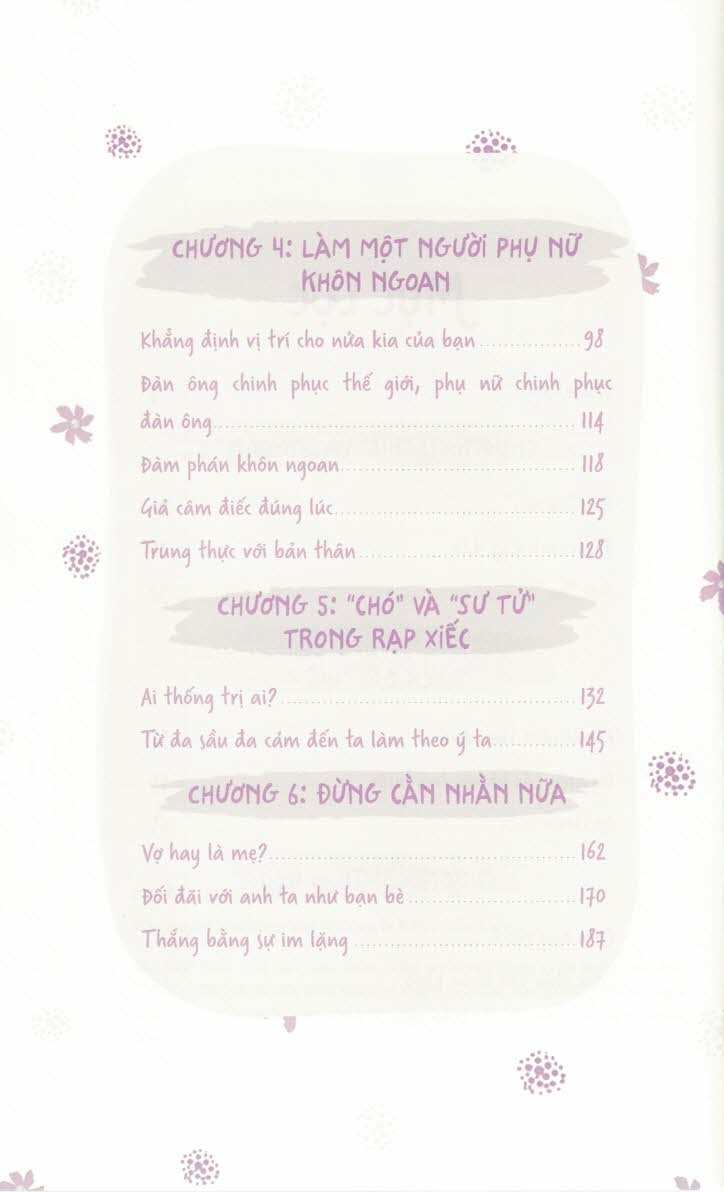 CHƯƠNG 4: LÀM MỘT NGƯỜI PHỤ NỮ
KHÔN NGOAN
Khẳng định vị trí cho nửa kia của bạn ................. 98
Đàn ông chinh phục thế giới, phụ nữ chinh phục
đàn ông ................. 114
Đàm phán khôn ngoan ................. 118
Giả câm điếc đúng lúc ................. 125
Trung thực với bản thân ................. 128
CHƯƠNG 5: "CHÓ" VÀ "SƯ TỬ"
TRONG RẠP XIẾC
Ai thống trị ai? ................. 132
Từ đa sầu đa cảm đến ta làm theo ý ta ................. 145
CHƯƠNG 6: ĐỪNG CẰN NHẰN NỮA
Vợ hay là mẹ? ................. 162
Đối đãi với anh ta như bạn bè ................. 170
Thắng bằng sự im lặng ................. 187